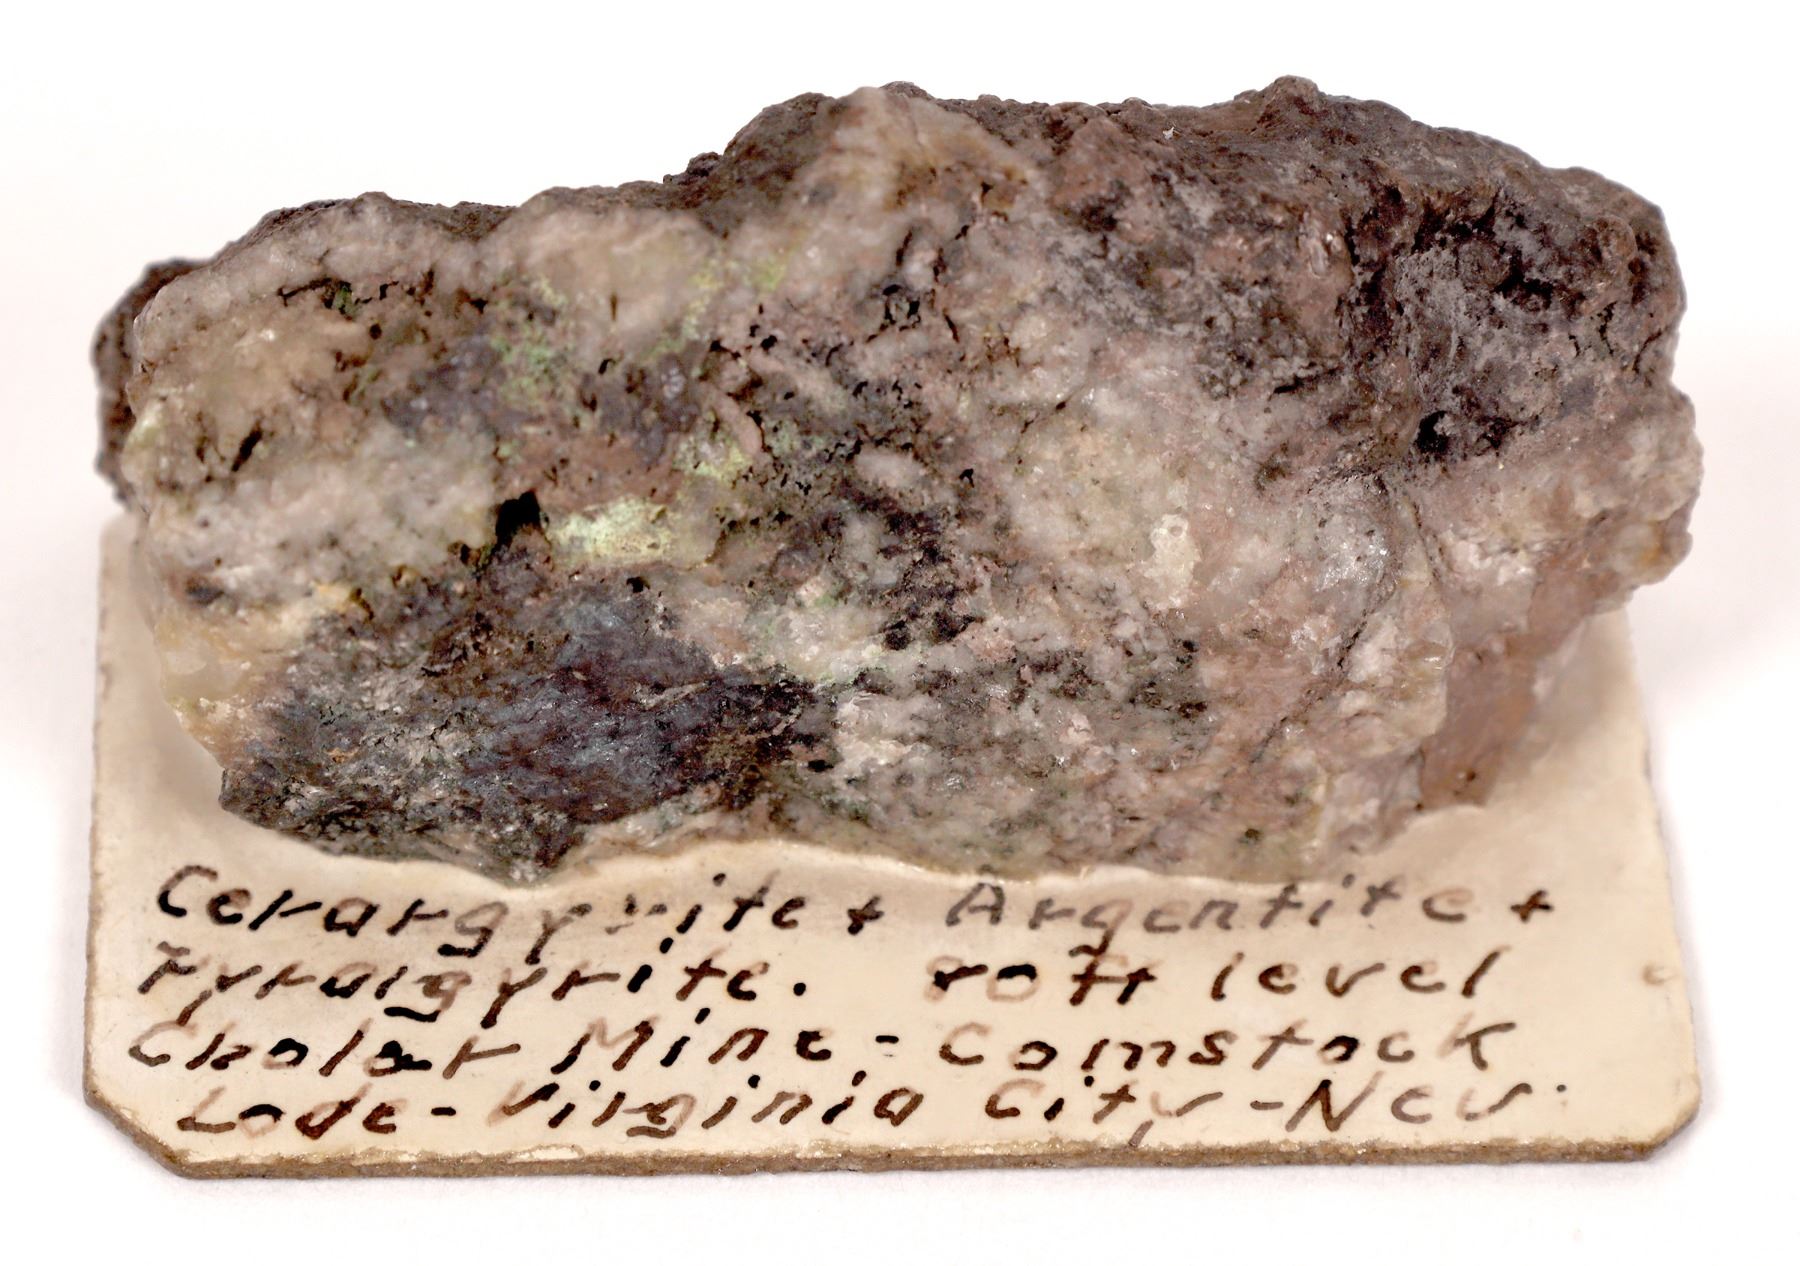 Cerargyrite + Argentite +
Pyrargyrite. level
Cholar Mine - Comstock
Lode - Virginia City - Nev.